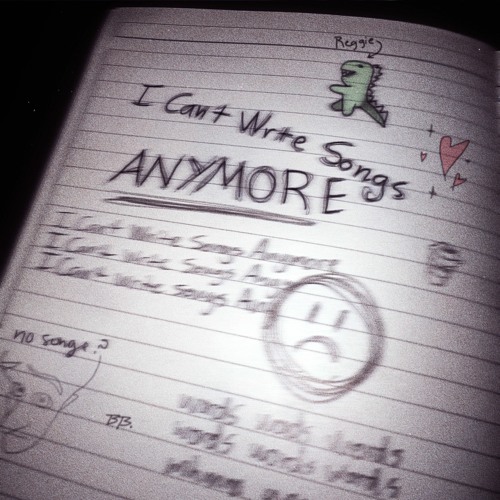 Reggie
I Can't Wrte Songs
ANYMORE
I Can't Write Songs Anymore
I Can't Write Songs
I Can't Write Songs
no songs?
B.B.
words words words
words words words